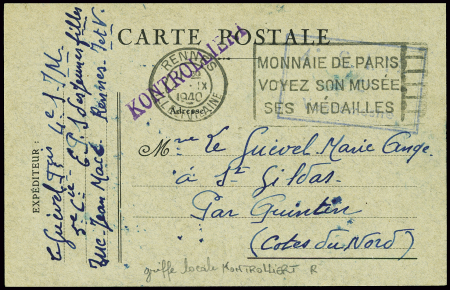 CARTE POSTALE
KONTROLLIERT
RENNES
IX
1940
ILLE-ET-VILAINE
MONNAIE DE PARIS
VOYEZ SON MUSÉE
SES MÉDAILLES
Adresse
Mme Le Guivel Marie Ange
à St Gildas
Par Quintin
(Cotes du Nord)
EXPÉDITEUR :
Le Guivel
5e Cie E.P.S des jeunes filles
Rue Jean Macé Rennes I et V.
griffe locale KONTROLLIERT R